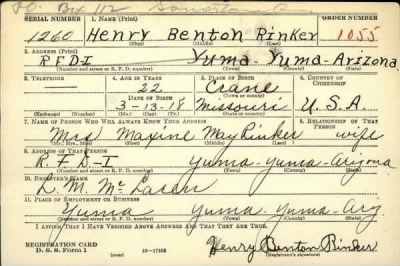 P.O. Box 112 Somerton
SERIAL NUMBER 1. NAME (Print) ORDER NUMBER
1260 Henry Benton Rinker 1055
(First) (Middle) (Last)
2. ADDRESS (Print)
RFD1 Yuma-Yuma-Arizona
(Number and street or R. F. D. number) (Town) (County) (State)
3. TELEPHONE 4. AGE IN YEARS 5. PLACE OF BIRTH 6. COUNTRY OF CITIZENSHIP
— 22 Crane
(Town or county)
DATE OF BIRTH
3-13-18 Missouri U.S.A.
(Exchange) (Number) (Mo.) (Day) (Yr.) (State or country)
7. NAME OF PERSON WHO WILL ALWAYS KNOW YOUR ADDRESS 8. RELATIONSHIP OF THAT PERSON
Mrs Maxine May Rinker wife
(Mr., Mrs., Miss) (First) (Middle) (Last)
9. ADDRESS OF THAT PERSON
R.F.D-1 Yuma-Yuma-Arizona
(Number and street or R. F. D. number) (Town) (County) (State)
10. EMPLOYER'S NAME
L. M. Mc
11. PLACE OF EMPLOYMENT OR BUSINESS
Yuma Yuma-Yuma-Ariz.
(Number and street or R. F. D. number) (Town) (County) (State)
I AFFIRM THAT I HAVE VERIFIED ABOVE ANSWERS AND THAT THEY ARE TRUE.
REGISTRATION CARD
D. S. S. Form 1 (over) 16—17105 Henry Benton Rinker
(Registrant's signature)